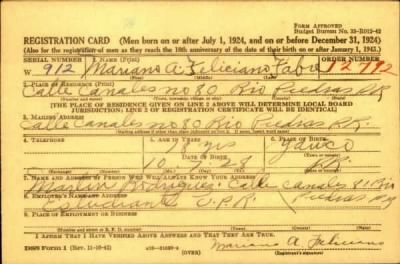 FORM APPROVED
Budget Bureau No. 33-R012-42
REGISTRATION CARD (Men born on or after July 1, 1924, and on or before December 31, 1924)
(Also for the registration of men as they reach the 18th anniversary of the date of their birth on or after January 1, 1943.)
SERIAL NUMBER 1. NAME (Print) ORDER NUMBER
W 912 Mariano A. Feliciano Fabre 12792
2. PLACE OF RESIDENCE (Print)
Calle Canales no 80 Rio Piedras P.R.
[THE PLACE OF RESIDENCE GIVEN ON LINE 2 ABOVE WILL DETERMINE LOCAL BOARD
JURISDICTION; LINE 2 OF REGISTRATION CERTIFICATE WILL BE IDENTICAL]
3. MAILING ADDRESS
Calle Canales no 80 Rio Piedras P.R.
4. TELEPHONE 5. AGE IN YEARS 6. PLACE OF BIRTH
Yauco
DATE OF BIRTH
10 28 P.R.
7. NAME AND ADDRESS OF PERSON WHO WILL ALWAYS KNOW YOUR ADDRESS
Martin Rodriguez Calle Canales 80 Rio Piedras P.R.
8. EMPLOYER'S NAME AND ADDRESS
Estudiante U.P.R.
9. PLACE OF EMPLOYMENT OR BUSINESS
I AFFIRM THAT I HAVE VERIFIED ABOVE ANSWERS AND THAT THEY ARE TRUE.
DSS Form 1 (Rev. 11-16-42) (OVER) Mariano A Feliciano